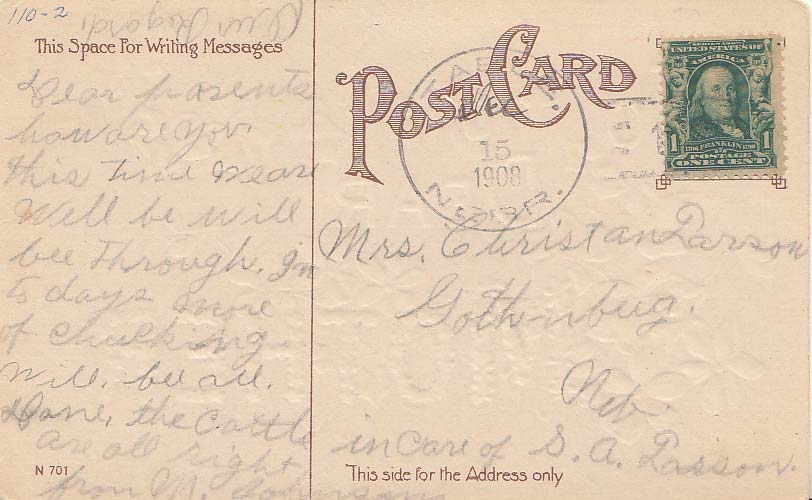 110-2
Our Regards
This Space For Writing Messages
Dear parents
how are you.
this time we are
Well be will
bee through. in
5 days more
of chucking.
Will. bee all.
Done, the Cattle
are all right
from M.
N 701
POST CARD
NEBR.
Dec
15
1908
SERIES 1902
UNITED STATES OF
AMERICA
1 1
1706 FRANKLIN 1790
POSTAGE
ONE CENT
Mrs. Christan Larson
Gothenbug.
Neb.
in care of S. A. Lasson.
This side for the Address only